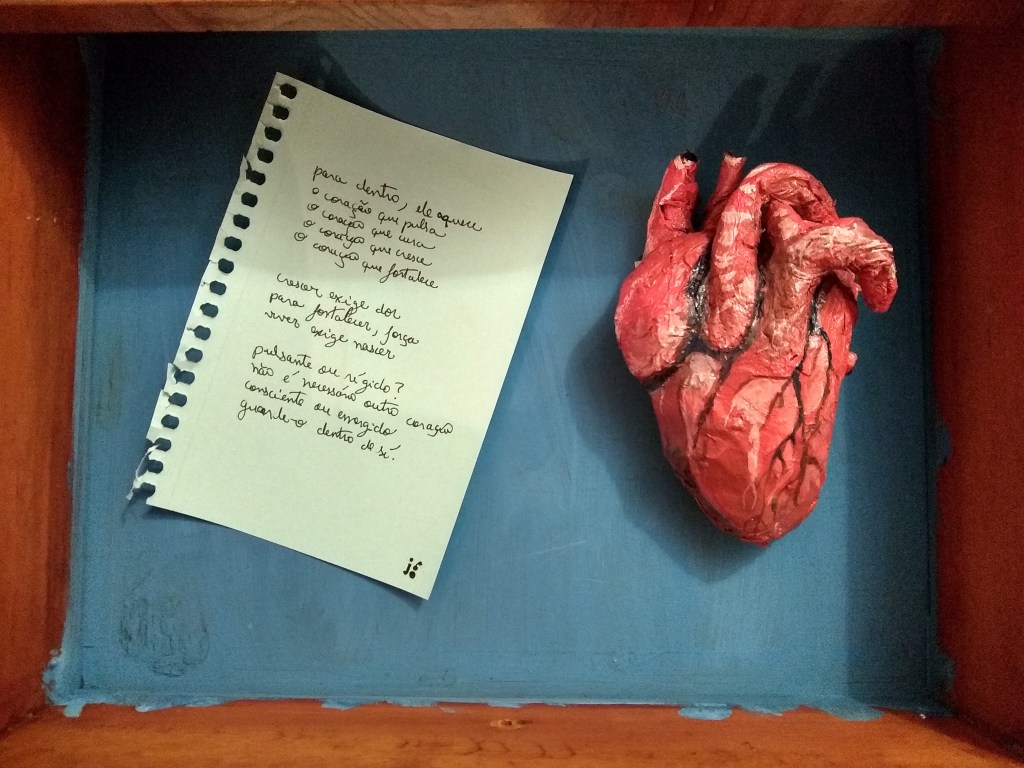 para dentro, ele aquece
o coração que pulsa
o coração que cura
o coração que cresce
o coração que fortalece
crescer exige dor
para fortalecer, força
viver exige nascer
pulsante ou rígido?
não é necessário outro coração
consciente ou
guarde-o dentro de si.